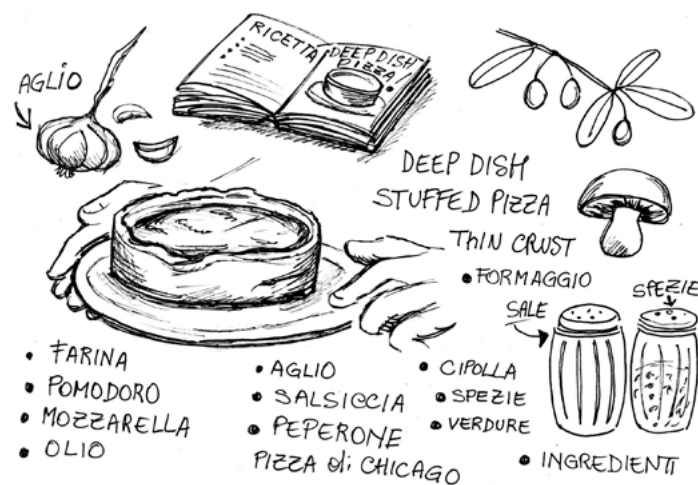 AGLIO
RICETTA
DEEP DISH
PIZZA
DEEP DISH
STUFFED PIZZA
THIN CRUST
• FORMAGGIO
SALE
SPEZIE
• FARINA
• POMODORO
• MOZZARELLA
• OLIO
• AGLIO
• SALSICCIA
• PEPERONE
PIZZA di CHICAGO
• CIPOLLA
• SPEZIE
• VERDURE
• INGREDIENTI